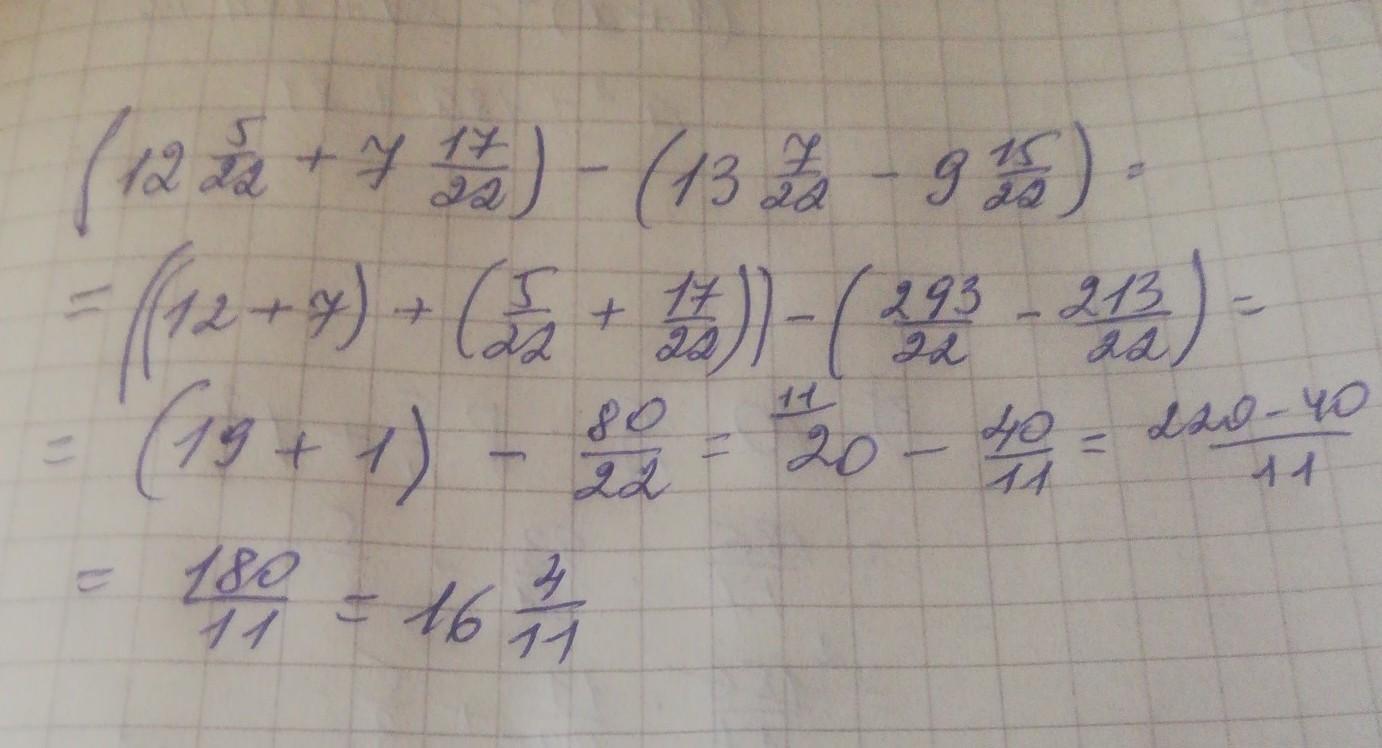 (12 5/22 + 7 17/22) - (13 7/22 - 9 15/22) =
= ((12 + 7) + (5/22 + 17/22)) - (293/22 - 213/22) =
= (19 + 1) - 80/22 = 11/ 20 - 40/11 = 220-40/11
= 180/11 = 16 4/11